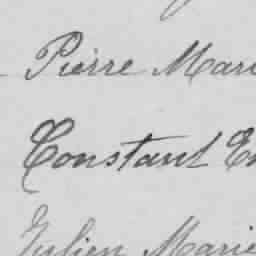 Pierre Mari
Constant E
Julien Marie